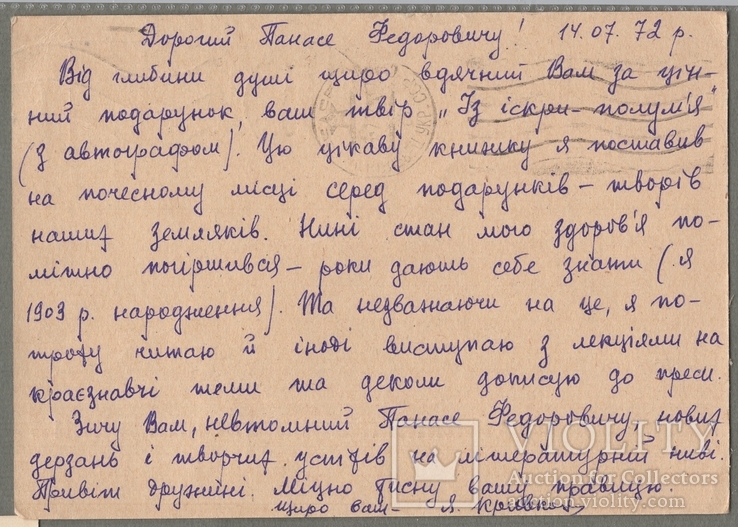 Дорогий Панасе Федоровичу! 14.07.72 р.
Від глибини душі щиро вдячний Вам за цін-
ний подарунок, ваш твір „Із іскри – полум'я"
(з автографом). Цю цікаву книжку я поставив
на почесному місці серед подарунків – творів
наших земляків. Нині стан мого здоров'я по-
мітно погіршився – роки дають себе знати (я
1903 р. народження). Та незважаючи на це, я по-
троху читаю й іноді виступаю з лекціями на
краєзнавчі теми та деколи дописую до преси.
Зичу Вам, невтомний Панасе Федоровичу, нових
дерзань і творчих успіхів на літературній ниві.
Привіт дружині. Міцно тисну вашу правицю
Щиро ваш – Я.
VIOLITY
Auction for Collectors
auction.violity.com